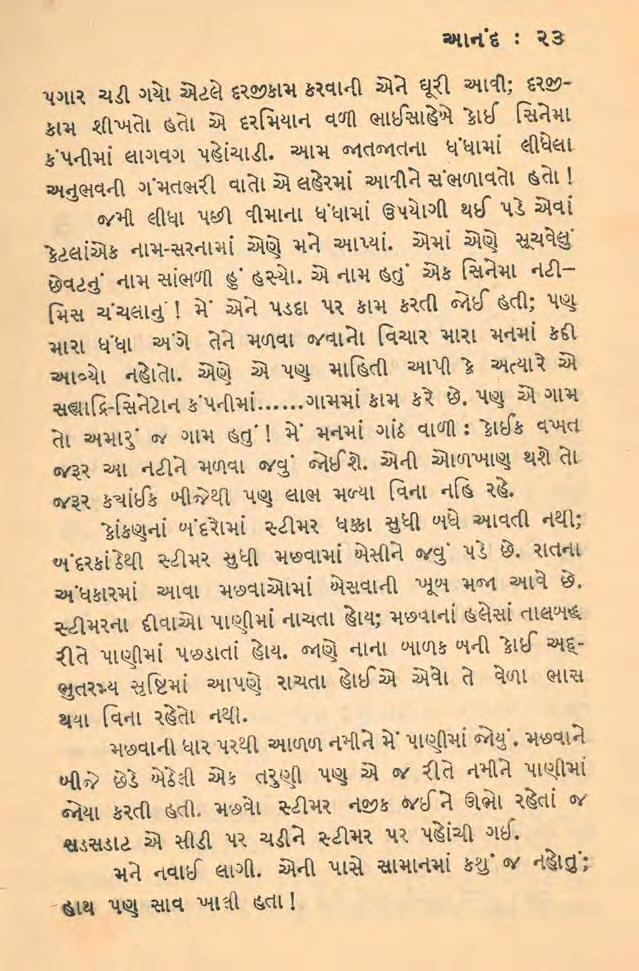 આનંદ : ૨૩
પગાર ચડી ગયો એટલે દરજીકામ કરવાની એને ઘૂરી આવી; દરજી-
કામ શીખતો હતો એ દરમિયાન વળી ભાઈસાહેબે કોઈ સિનેમા
કંપનીમાં લાગવગ પહોંચાડી. આમ જાતજાતના ધંધામાં લીધેલા
અનુભવની ગંમતભરી વાતો એ લહેરમાં આવીને સંભળાવતો હતો !
જમી લીધા પછી વીમાના ધંધામાં ઉપયોગી થઈ પડે એવાં
કેટલાંએક નામ-સરનામાં એણે મને આપ્યાં. એમાં એણે સૂચવેલું
છેવટનું નામ સાંભળી હું હસ્યો. એ નામ હતું એક સિનેમા નટી–
મિસ ચંચલાનું ! મેં એને પડદા પર કામ કરતી જોઈ હતી; પણ
મારા ધંધા અંગે તેને મળવા જવાનો વિચાર મારા મનમાં કદી
આવ્યો નહોતો. એણે એ પણ માહિતી આપી કે અત્યારે એ
સહ્યાદ્રિ-સિનેટોન કંપનીમાં......ગામમાં કામ કરે છે. પણ એ ગામ
તો અમારું જ ગામ હતું ! મેં મનમાં ગાંઠ વાળી : કોઈક વખત
જરૂર આ નટીને મળવા જવું જોઈશે. એની ઓળખાણ થશે તો
જરૂર કયાંઈક બીજેથી પણ લાભ મળ્યા વિના નહિ રહે.
કોંકણનાં બંદરોમાં સ્ટીમર ધક્કા સુધી બધે આવતી નથી;
બંદરકાંઠેથી સ્ટીમર સુધી મછવામાં બેસીને જવું પડે છે. રાતના
અંધકારમાં આવા મછવાઓમાં બેસવાની ખૂબ મજા આવે છે.
સ્ટીમરના દીવાઓ પાણીમાં નાચતા હોય; મછવાનાં હલેસાં તાલબદ્ધ
રીતે પાણીમાં પછડાતાં હોય. જાણે નાના બાળક બની કોઈ અદ્-
ભુતરમ્ય સૃષ્ટિમાં આપણે રાચતા હોઈએ એવો તે વેળા ભાસ
થયા વિના રહેતો નથી.
મછવાની ધાર પરથી આગળ નમીને મેં પાણીમાં જોયું. મછવાને
બીજે છેડે બેઠેલી એક તરુણી પણ એ જ રીતે નમીને પાણીમાં
જોયા કરતી હતી. મછવો સ્ટીમર નજીક જઈને ઊભો રહેતાં જ
સડસડાટ એ સીડી પર ચડીને સ્ટીમર પર પહોંચી ગઈ.
મને નવાઈ લાગી. એની પાસે સામાનમાં કશું જ નહોતું;
હાથ પણ સાવ ખાલી હતા !